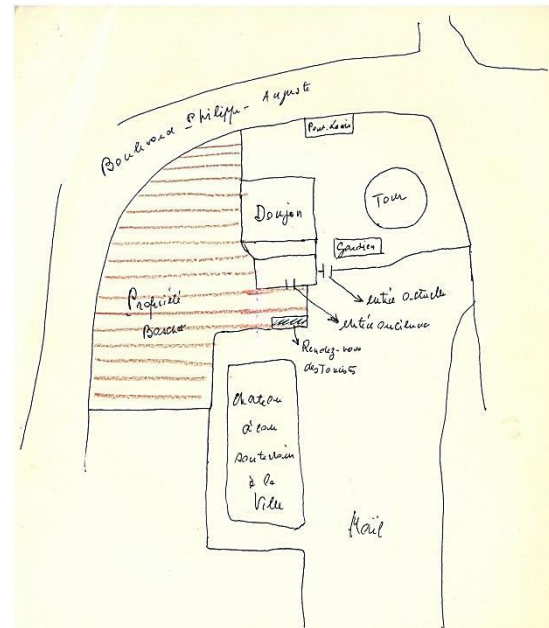 Boulevard Philippe-Auguste
Pont-Levis
Donjon
Tour
Gardien
entrée actuelle
entrée ancienne
Propriété
Rendez-vous
des Tourists
Chateau
d'eau
souterrain
à la
Ville
Mail